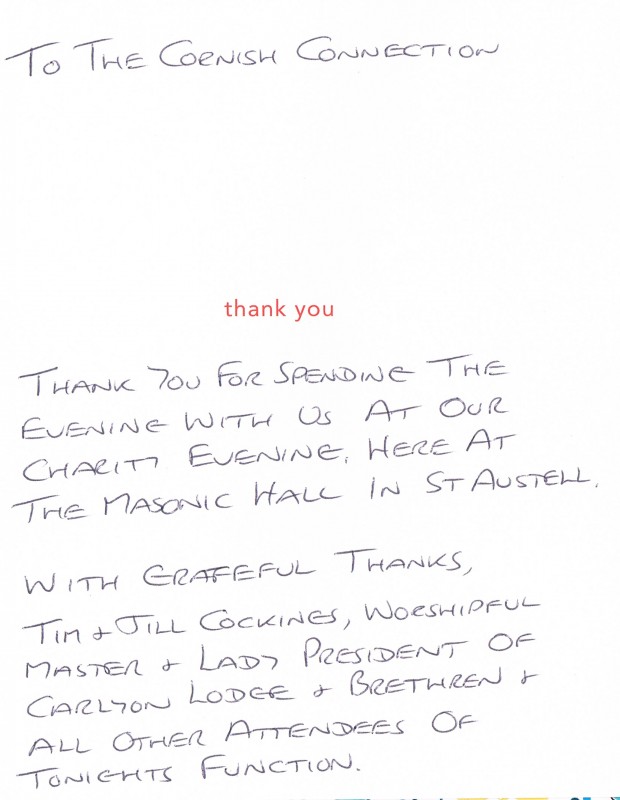 TO THE CORNISH CONNECTION
thank you
THANK YOU FOR SPENDING THE
EVENING WITH US AT OUR
CHARITY EVENING, HERE AT
THE MASONIC HALL IN ST AUSTELL.
WITH GRATEFUL THANKS,
TIM & JILL COCKINGS, WORSHIPFUL
MASTER & LADY PRESIDENT OF
CARLYON LODGE & BRETHREN &
ALL OTHER ATTENDEES OF
TONIGHTS FUNCTION.